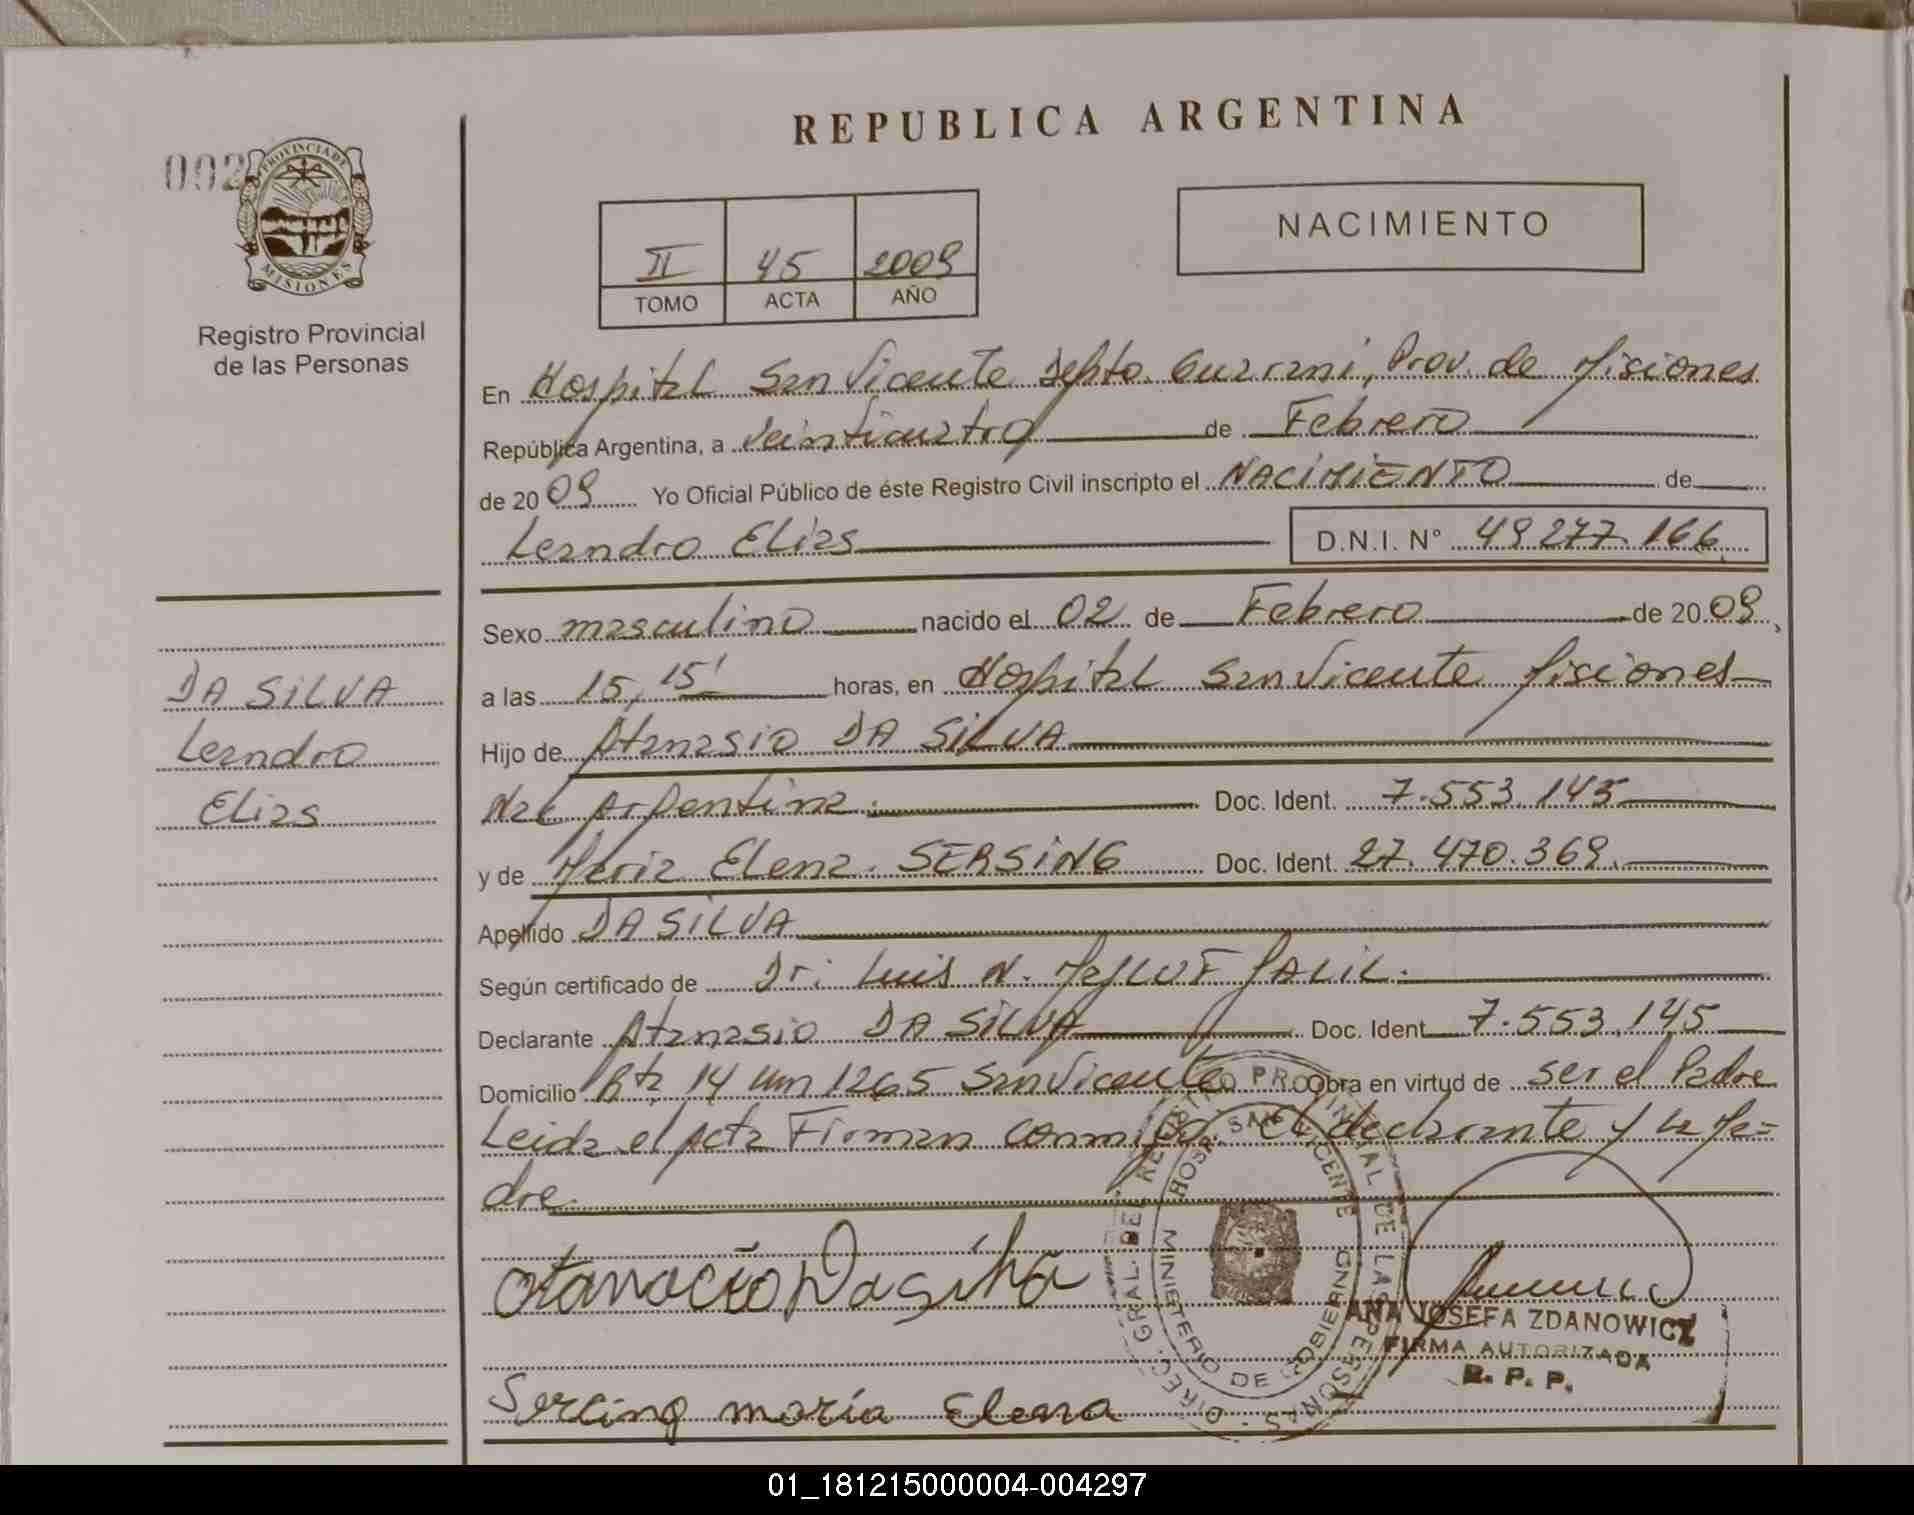 REPUBLICA ARGENTINA
002
PROVINCIA DE
MISIONES
Registro Provincial
de las Personas
II 45 2009
TOMO ACTA AÑO
NACIMIENTO
En Hospital San Vicente Depto. Guarani, Prov. de Misiones
República Argentina, a veinticuatro de Febrero
de 20 09 Yo Oficial Público de éste Registro Civil inscripto el NACIMIENTO de
Leandro Elias D.N.I. N° 49.277.166
Sexo masculino nacido el 02 de Febrero de 20 09,
a las 15,15' horas, en Hospital San Vicente Misiones
Hijo de Atanasio DA SILVA
Nac Argentina. Doc. Ident. 7.553.145
y de Maria Elena. SERSING Doc. Ident. 27.470.369.
Apellido DA SILVA
Según certificado de Dr. Luis N. JALIL.
Declarante Atanasio DA SILVA Doc. Ident 7.553.145
Domicilio Rta 14 Km 1265 San Vicente Obra en virtud de ser el Padre
Leida el Acta Firman conmigo el declarante y la Ma=
dre.
DA SILVA
Leandro
Elias
Atanacio Dasilva
Sercing maría Elena
DIREC. GRAL. DEL REGISTRO PROVINCIAL DE LAS PERSONAS
HOSP. SAN VICENTE
MINISTERIO DE GOBIERNO
ANA JOSEFA ZDANOWICZ
FIRMA AUTORIZADA
R. P. P.
01_181215000004-004297